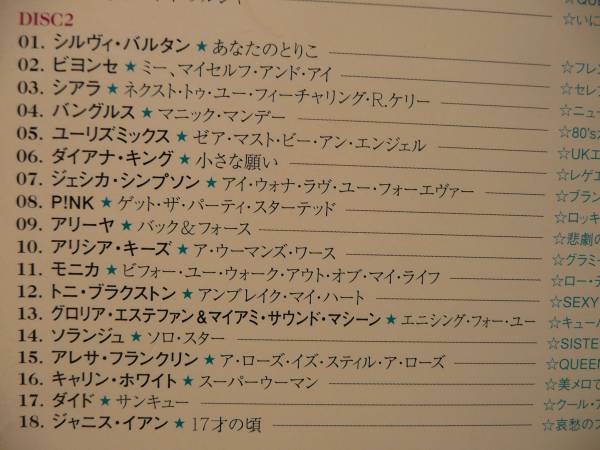 DISC2
☆いに
01. シルヴィ・バルタン ★ あなたのとりこ
02. ビヨンセ ★ ミー、マイセルフ・アンド・アイ ☆フレン
03. シアラ ★ ネクスト・トゥ・ユー・フィーチャリング・R.ケリー ☆セレブ
04. バングルス ★ マニック・マンデー ☆ニュー
05. ユーリズミックス ★ ゼア・マスト・ビー・アン・エンジェル ☆80's
06. ダイアナ・キング ★ 小さな願い ☆UKエ
07. ジェシカ・シンプソン ★ アイ・ウォナ・ラヴ・ユー・フォーエヴァー ☆レゲエ
08. P!NK ★ ゲット・ザ・パーティ・スターテッド ☆ブラン
09. アリーヤ ★ バック&フォース ☆ロッキ
10. アリシア・キーズ ★ ア・ウーマンズ・ワース ☆悲劇の
11. モニカ ★ ビフォー・ユー・ウォーク・アウト・オブ・マイ・ライフ ☆グラミー
12. トニ・ブラクストン ★ アンブレイク・マイ・ハート ☆ロー・テ
13. グロリア・エステファン&マイアミ・サウンド・マシーン ★ エニシング・フォー・ユー ☆SEXY
14. ソランジュ ★ ソロ・スター ☆キューバ
15. アレサ・フランクリン ★ ア・ローズ・イズ・スティル・ア・ローズ ☆SISTE
16. キャリン・ホワイト ★ スーパーウーマン ☆QUEEN
17. ダイド ★ サンキュー ☆美メロで
18. ジャニス・イアン ★ 17才の頃 ☆クール・ア
☆哀愁のフ